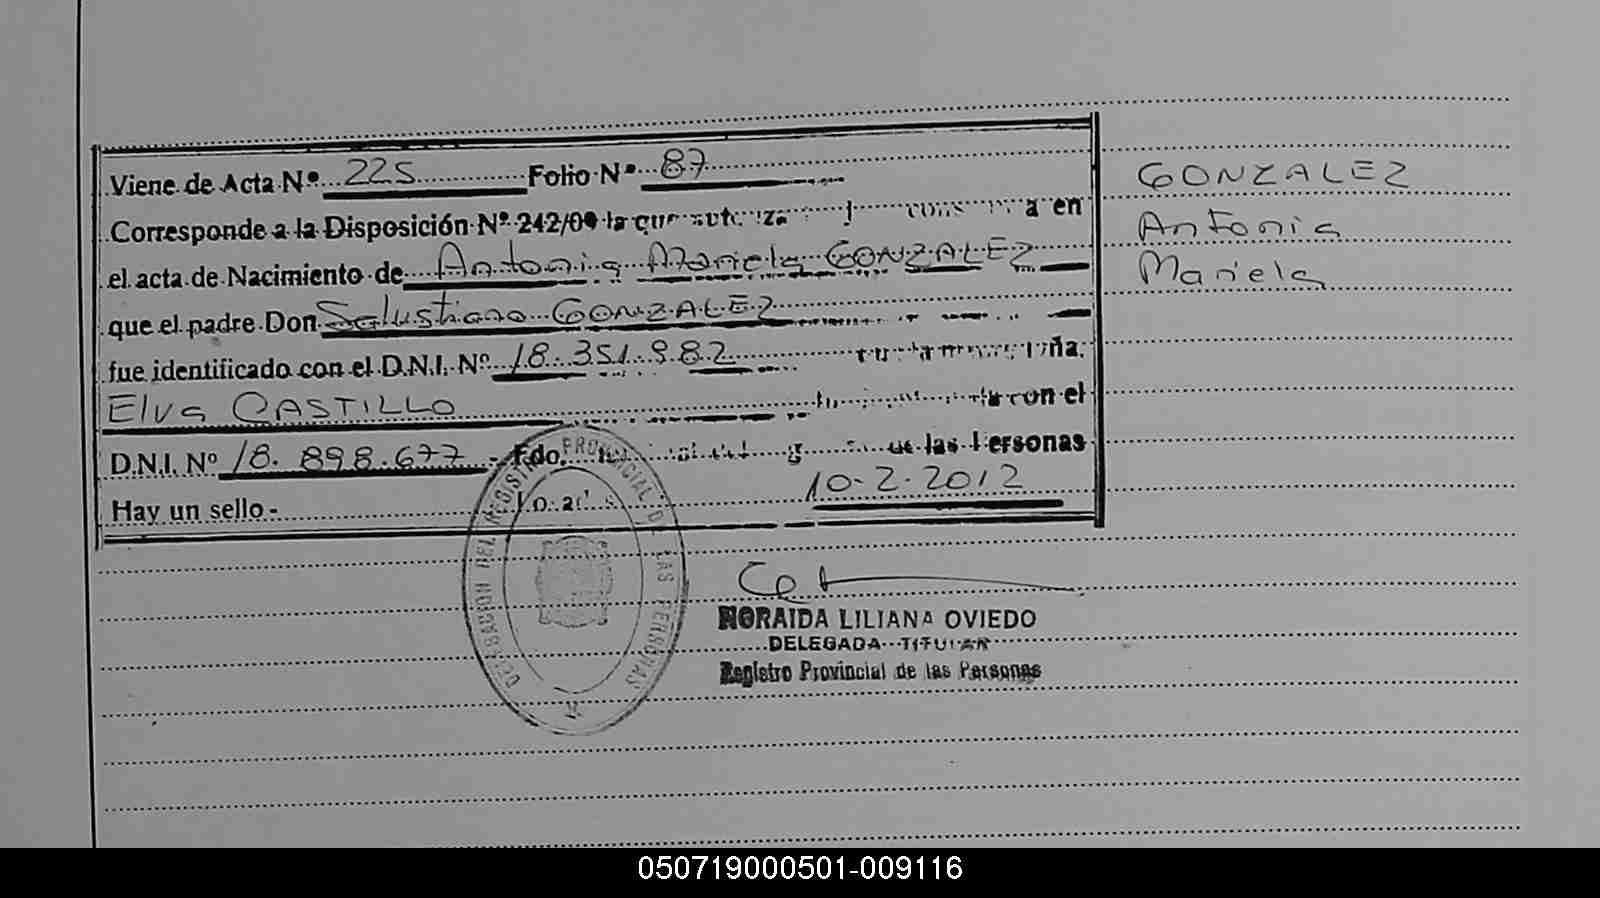 Viene de Acta Nº 225 Folio Nº 87
Corresponde a la Disposición Nº 242/09 la que en
el acta de Nacimiento de Antonia Mariela GONZALEZ
que el padre Don Salustiano GONZALEZ
fue identificado con el D.N.I. Nº 18.351.982
Elva CASTILLO con el
D.N.I. Nº 18.898.677 - Fdo. de las Personas
Hay un sello - 10-2-2012
GONZALEZ
Antonia
Mariela
DELEGACION DEL REGISTRO PROVINCIAL DE LAS PERSONAS
NORAIDA LILIANA OVIEDO
DELEGADA TITULAR
Registro Provincial de las Personas
050719000501-009116